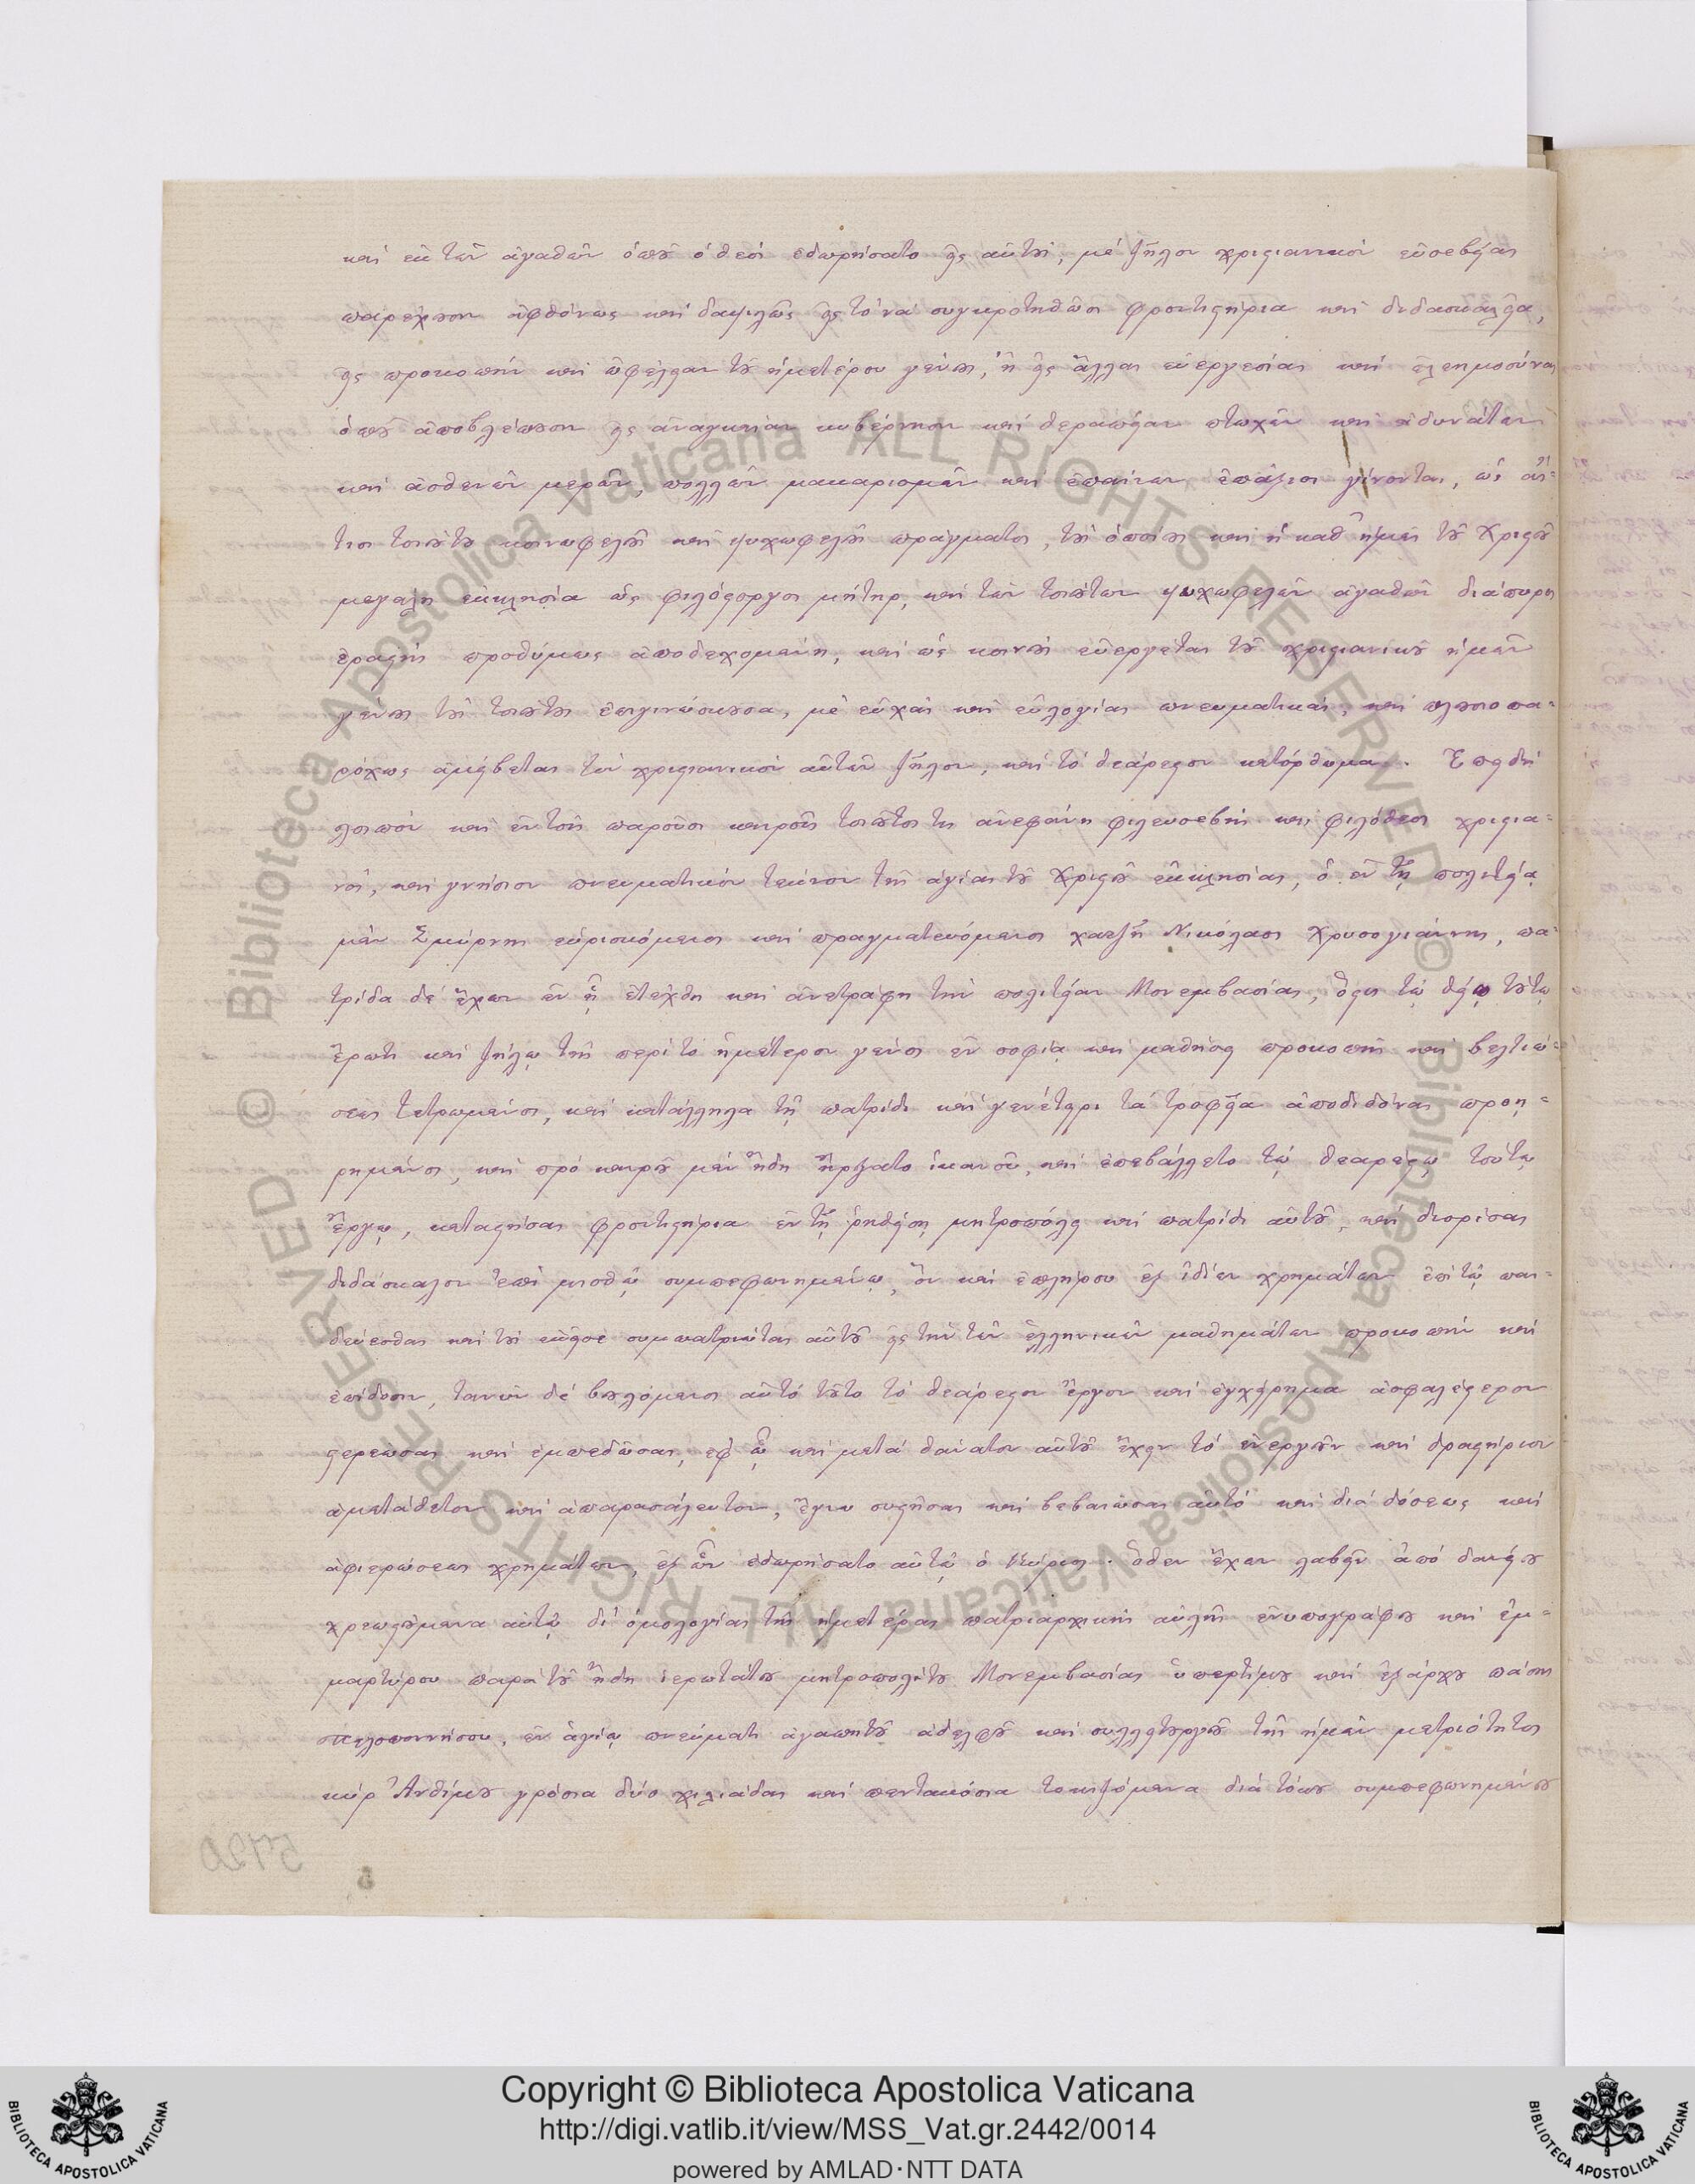 καὶ ἐκ τῶν ἀγαθῶν ὁποῦ ὁ θεὸς ἐδωρήσατο εἰς αὐτοὺς, μὲ ζῆλον χριστιανικὸν εὐσεβείας
παρέχουσιν ἀφθόνως καὶ δαψιλῶς εἰς τὸ νὰ συγκροτηθῶσι φροντιστήρια καὶ διδασκαλεῖα,
εἰς προκοπὴν καὶ ὠφέλειαν τοῦ ἡμετέρου γένους, ἢ εἰς ἄλλας εὐεργεσίας καὶ ἐλεημοσύνας
ὁποῦ ἀποβλέπουσιν εἰς ἀναγκαίαν κυβέρνησιν καὶ θεραπείαν πτωχῶν καὶ ἀδυνάτων
καὶ ἀσθενῶν μερῶν, πολλῶν μακαρισμῶν καὶ ἐπαίνων ἐπάξιοι γίνονται, ὡς αἴ-
τιοι τοιούτου κοινωφελοῦς καὶ ψυχωφελοῦς πράγματος, τοὺς ὁποίους καὶ ἡ καθ' ἡμᾶς τοῦ Χριστοῦ
μεγάλη ἐκκλησία ὡς φιλόστοργος μήτηρ, καὶ τῶν τοιούτων ψυχωφελῶν ἀγαθῶν διάπυρος
ἐραστὴς προθύμως ἀποδεχομένη, καὶ ὡς κοινοὺς εὐεργέτας τοῦ χριστιανικοῦ ἡμῶν
γένους τοὺς τοιούτους ἐπιγινώσκουσα, μὲ εὐχὰς καὶ εὐλογίας πνευματικὰς, καὶ πλουσιοπα-
ρόχως ἀμείβεται τὸν χριστιανικὸν αὐτῶν ζῆλον, καὶ τὸ θεάρεστον κατόρθωμα. Ἐπειδὴ
λοιπὸν καὶ ἐν τοῖς παροῦσι καιροῖς τοιοῦτός τις ἀνεφάνη φιλευσεβὴς καὶ φιλόθεος χριστια-
νὸς, καὶ γνήσιον πνευματικὸν τέκνον τῆς ἁγίας τοῦ Χριστοῦ ἐκκλησίας, ὁ ἐν τῇ πολιτείᾳ
μὲν Σμύρνης εὑρισκόμενος καὶ πραγματευόμενος χατζῆ Νικόλαος Χρυσογιάννης, πα-
τρίδα δὲ ἔχων ἐν ᾗ ἐτέχθη καὶ ἀνετράφη τὴν πολιτείαν Μονεμβασίας, ὅστις τῷ θείῳ τούτῳ
ἔρωτι καὶ ζήλῳ τῆς περὶ τὸ ἡμέτερον γένος ἐν σοφίᾳ καὶ μαθήσει προκοπῆς καὶ βελτιώ-
σεως τετρωμένος, καὶ κατάλληλα τῇ πατρίδι καὶ γενέτειρι τὰ τροφεῖα ἀποδιδόναι προῃ-
ρημένος, καὶ πρὸ καιροῦ μὲν ἤδη ἤρξατο ἱκανοῦ, καὶ ἐπεβάλλετο τῷ θεαρέστῳ τούτῳ
ἔργῳ, καταστήσας φροντιστήρια ἐν τῇ ῥηθείσῃ μητροπόλει καὶ πατρίδι αὐτοῦ, καὶ διορίσας
διδάσκαλον ἐπὶ μισθῷ συμπεφωνημένῳ, ὃν καὶ ἐπλήρου ἐξ ἰδίων χρημάτων ἐπὶ τῷ παι-
δεύεσθαι καὶ τοὺς ἐκεῖσε συμπατριώτας αὐτοῦ εἰς τὴν τῶν ἑλληνικῶν μαθημάτων προκοπὴν καὶ
ἐπίδοσιν, τανῦν δὲ βουλόμενος αὐτὸ τοῦτο τὸ θεάρεστον ἔργον καὶ ἐγχείρημα ἀσφαλέστερον
στερεῶσαι καὶ ἐμπεδῶσαι, ἐφ' ᾧ καὶ μετὰ θάνατον αὐτοῦ ἔχειν τὸ ἐνεργοῦν καὶ δραστήριον
ἀμετάθετον καὶ ἀπαρασάλευτον, ἔγνω συστῆσαι καὶ βεβαιῶσαι αὐτὸ καὶ διὰ δόσεως καὶ
ἀφιερώσεως χρημάτων, ἐξ ὧν ἐδωρήσατο αὐτῷ ὁ Κύριος. ὅθεν ἔχων λαβεῖν ἀπὸ δανείου
χρεωστούμενα αὐτῷ δι' ὁμολογίας τῆς ἡμετέρας πατριαρχικῆς αὐλῆς ἐνυπογράφου καὶ ἐμ-
μαρτύρου παρὰ τοῦ ἤδη ἱερωτάτου μητροπολίτου Μονεμβασίας ὑπερτίμου καὶ ἐξάρχου πάσης
πελοποννήσου, ἐν ἁγίῳ πνεύματι ἀγαπητοῦ ἀδελφοῦ καὶ συλλειτουργοῦ τῆς ἡμῶν μετριότητος
κὺρ Ἀνθίμου γρόσια δύο χιλιάδας καὶ πεντακόσια τοκιζόμενα διὰ τόκου συμπεφωνημένου
5720
Copyright © Biblioteca Apostolica Vaticana
http://digi.vatlib.it/view/MSS_Vat.gr.2442/0014
powered by AMLAD·NTT DATA
BIBLIOTECA APOSTOLICA VATICANA
BIBLIOTECA APOSTOLICA VATICANA
© Biblioteca Apostolica Vaticana ALL RIGHTS RESERVED
© Biblioteca Apostolica Vaticana ALL RIGHTS RESERVED